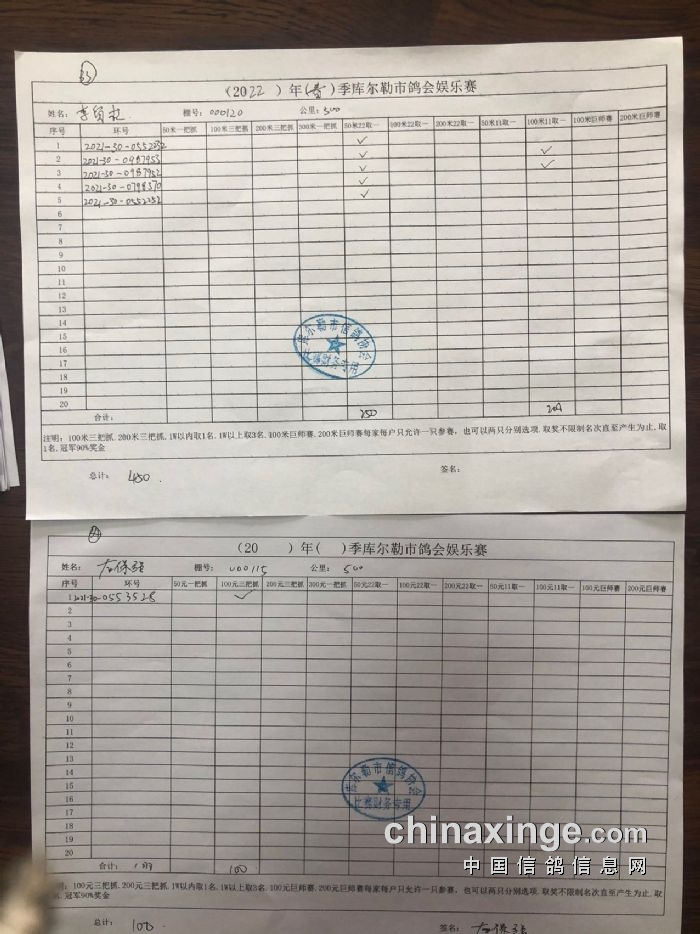 33
(2022 ) 年(春) 季库尔勒市鸽会娱乐赛
姓名: 棚号: 000120 公里: 500
序号 环号 50米一把抓 100米三把抓 200米三把抓 300米一把抓 50米22取一 100米22取一 200米22取一 50米11取一 100米11取一 100米巨师赛 200米巨师赛
1 2021-30-0552252 ✓
2 2021-30-0987953 ✓ ✓
3 2021-30-0987952 ✓ ✓
4 2021-30-0798370 ✓
5 2021-30-0552252 ✓
6
7
8
9
10
11
12
13
14
15
16
17
18
19
20
库尔勒市信鸽协会
比赛财务专用
合计: 250 200
注明: 100米三把抓. 200米三把抓. 1W以内取1名. 1W以上取3名. 100米巨师赛. 200米巨师赛每家每户只允许一只参赛, 也可以两只分别选项. 取奖不限制名次直至产生为止. 取
1名. 冠军90%奖金
总计: 450. 签名:
(20 ) 年( ) 季库尔勒市鸽会娱乐赛
姓名: 左保强 棚号: 000115 公里: 500
序号 环号 50元一把抓 100元三把抓 200元三把抓 300元一把抓 50元22取一 100元22取一 200元22取一 50元11取一 100元11取一 100元巨师赛 200元巨师赛
1 2021-30-0553528 ✓
2
3
4
5
6
7
8
9
10
11
12
13
14
15
16
17
18
19
20
库尔勒市信鸽协会
比赛财务专用
合计: 1羽 100
注明: 100元三把抓. 200元三把抓. 1W以内取1名. 1W以上取3名. 100元巨师赛. 200元巨师赛每家每户只允许一只参赛, 也可以两只分别选项. 取奖不限制名次直至产生为止. 取
1名. 冠军90%奖金
总计: 100 签名: 左保强
chinaxinge.com
中国信鸽信息网